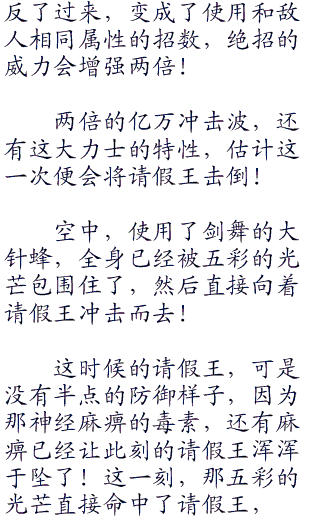 反了过来，变成了使用和敌
人相同属性的招数，绝招的
威力会增强两倍！
两倍的亿万冲击波，还
有这大力士的特性，估计这
一次便会将请假王击倒！
空中，使用了剑舞的大
针蜂，全身已经被五彩的光
芒包围住了，然后直接向着
请假王冲击而去！
这时候的请假王，可是
没有半点的防御样子，因为
那神经麻痹的毒素，还有麻
痹已经让此刻的请假王浑浑
于坠了！这一刻，那五彩的
光芒直接命中了请假王，